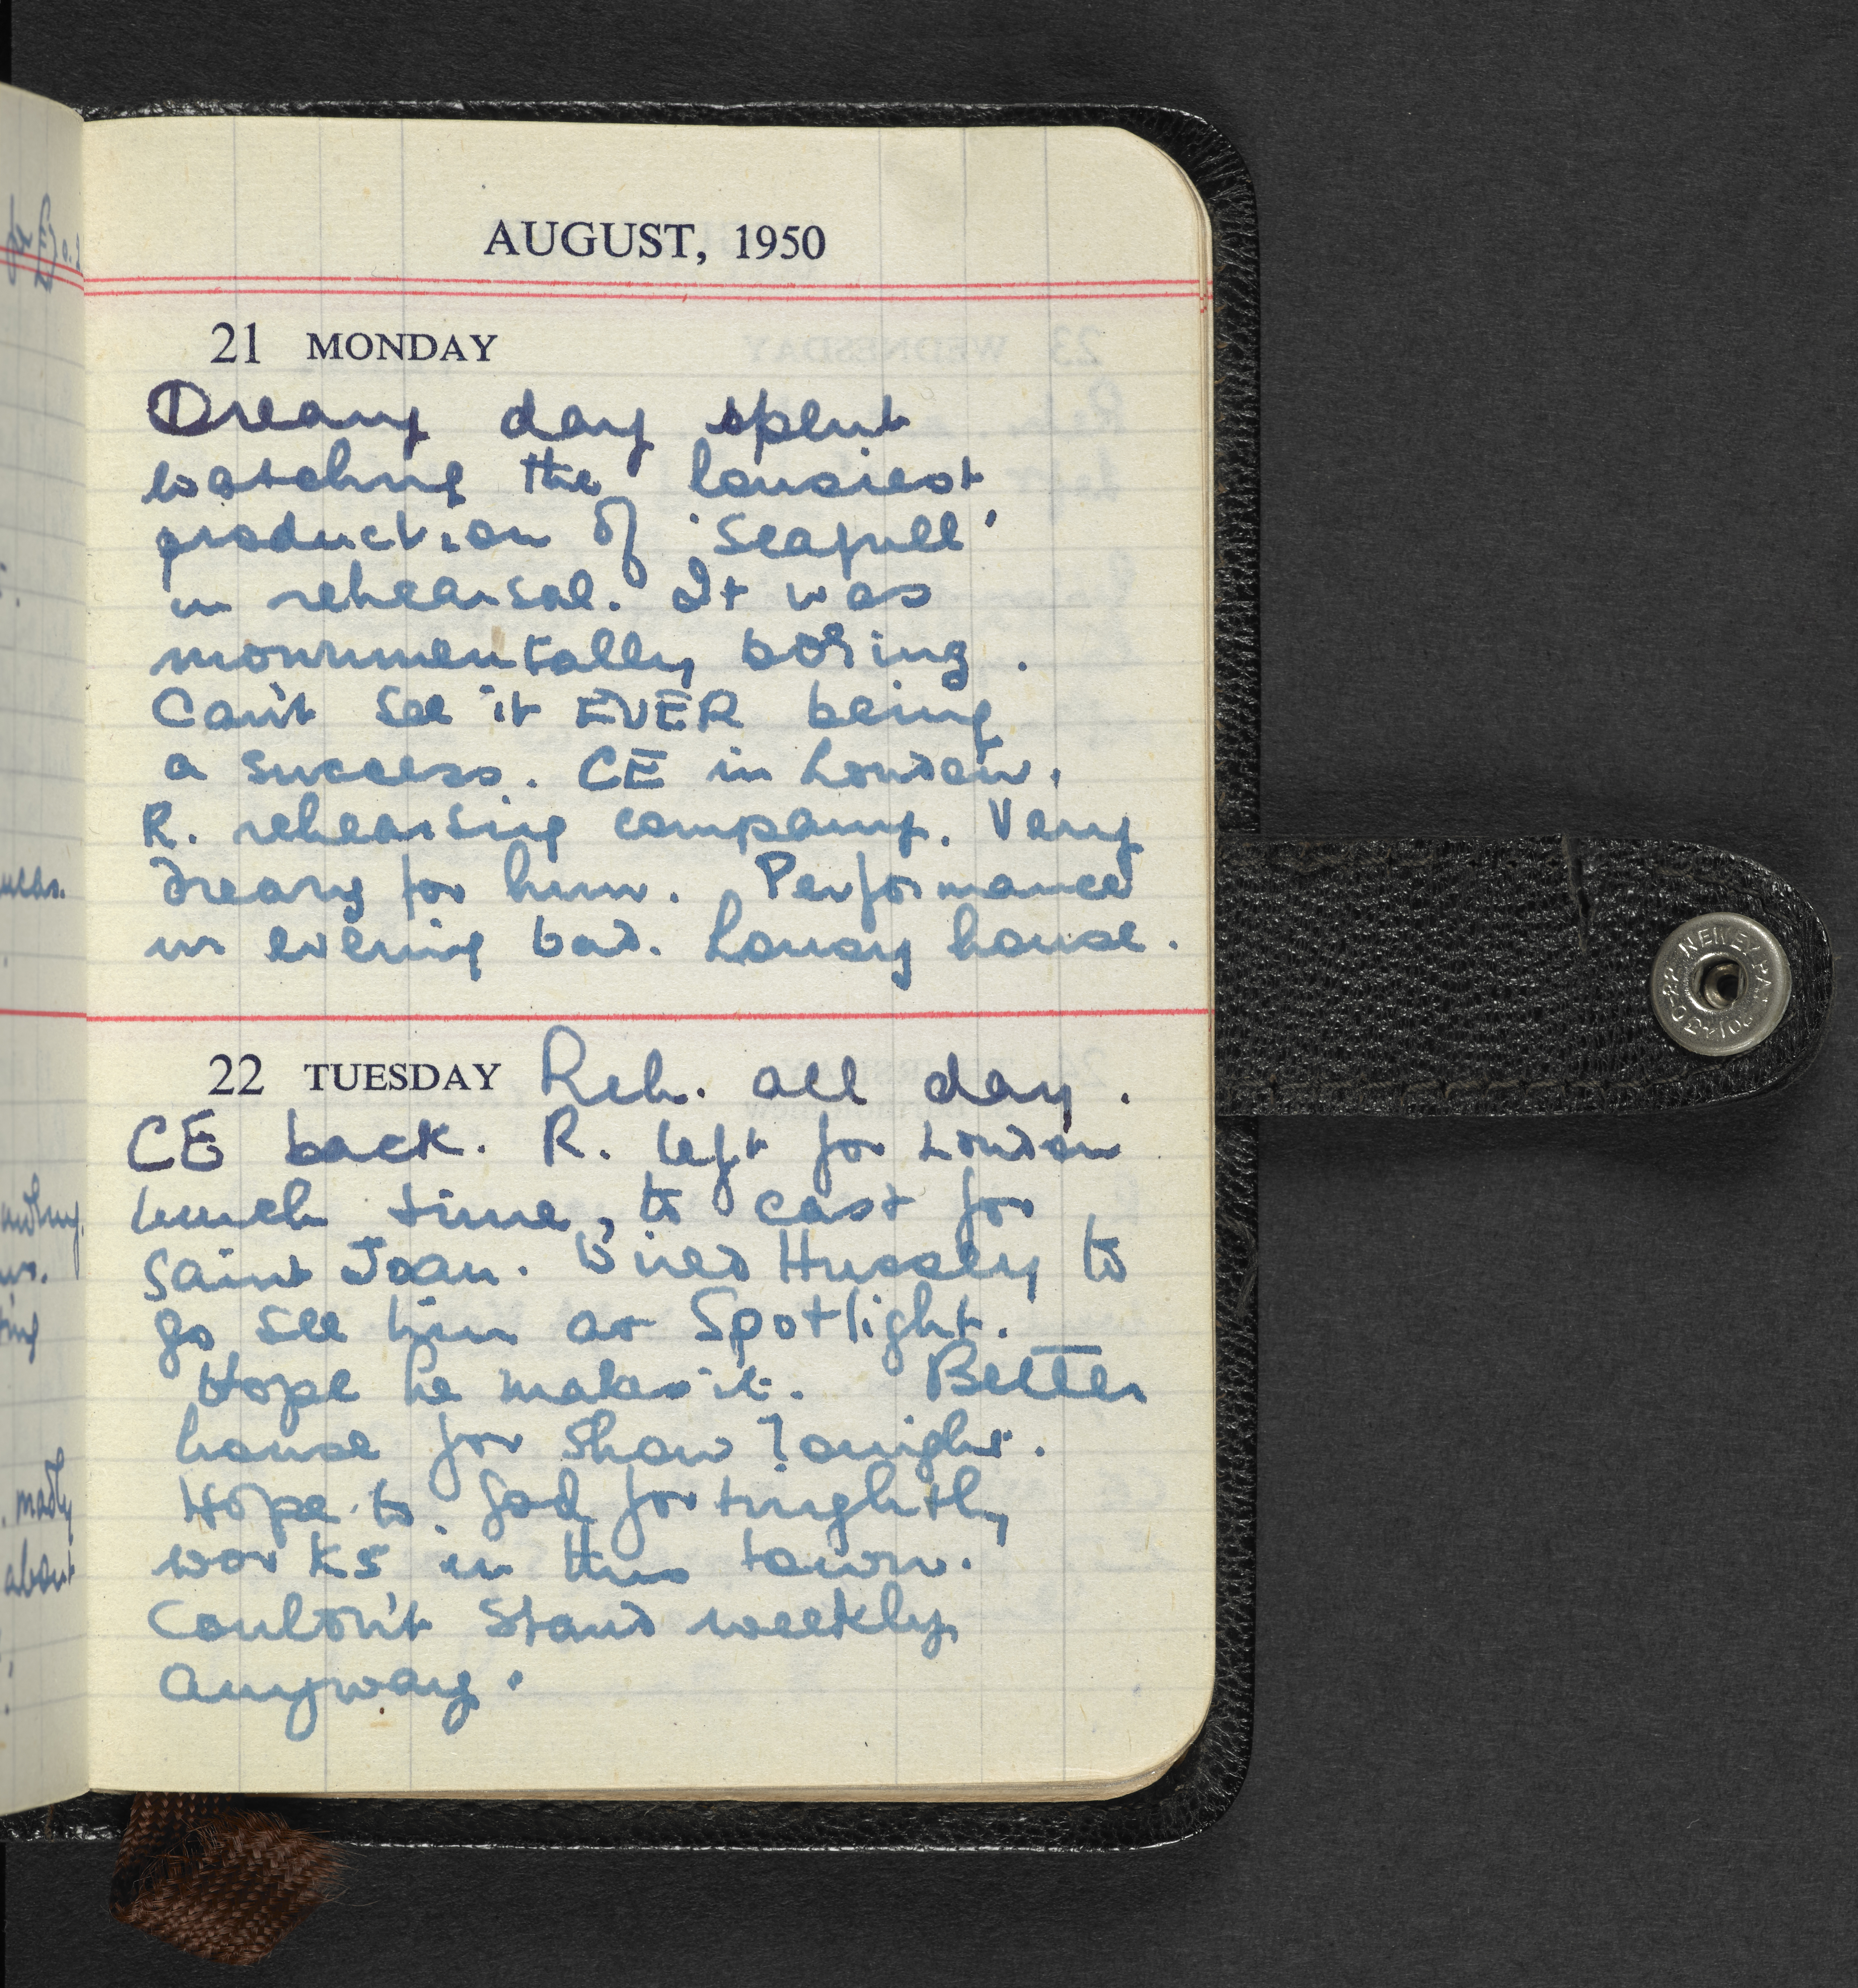 for £70.2
AUGUST, 1950
21 MONDAY
Dreary day spent
watching the lousiest
production of 'Seagull'
in rehearsal. It was
monumentally boring.
Can't see it EVER being
a success. CE in London.
R. rehearsing company. Very
dreary for him. Performance
in evening bad. Lousy house.
22 TUESDAY Reh. all day.
CE back. R. left for London
lunch time, to cast for
Saint Joan. Wired Hussley to
go see him at Spotlight.
Hope he makes it. Better
house for show Tonight.
Hope to God fortnightly
works in this town.
Couldn't stand weekly
anyway.
madly
about
NEWEY